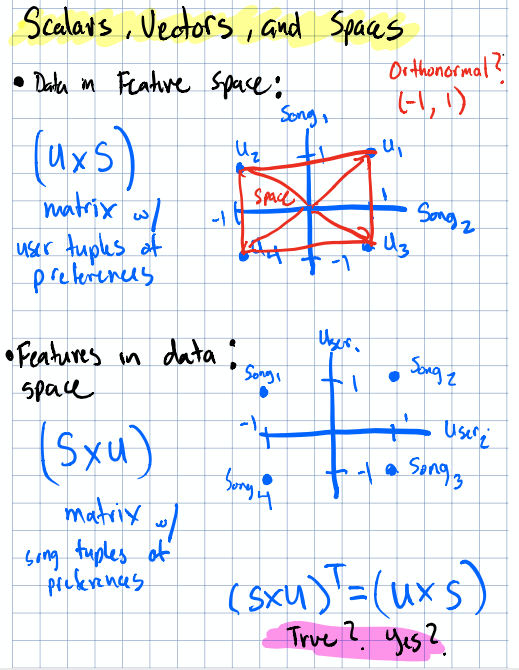 Scalars, Vectors, and Spaces
• Data in Feature Space:
Orthonormal?
(-1, 1)
(U x S)
matrix w/
user tuples of
preferences
Song₁
U₂
1
U₁
Space
-1
1
Song₂
U₄
-1
U₃
• Features in data space:
(S x U)
matrix w/
song tuples of
preferences
User₁
Song₁
1
Song₂
-1
1
User₂
Song₄
-1
Song₃
(S x U)ᵀ = (U x S)
True? Yes?